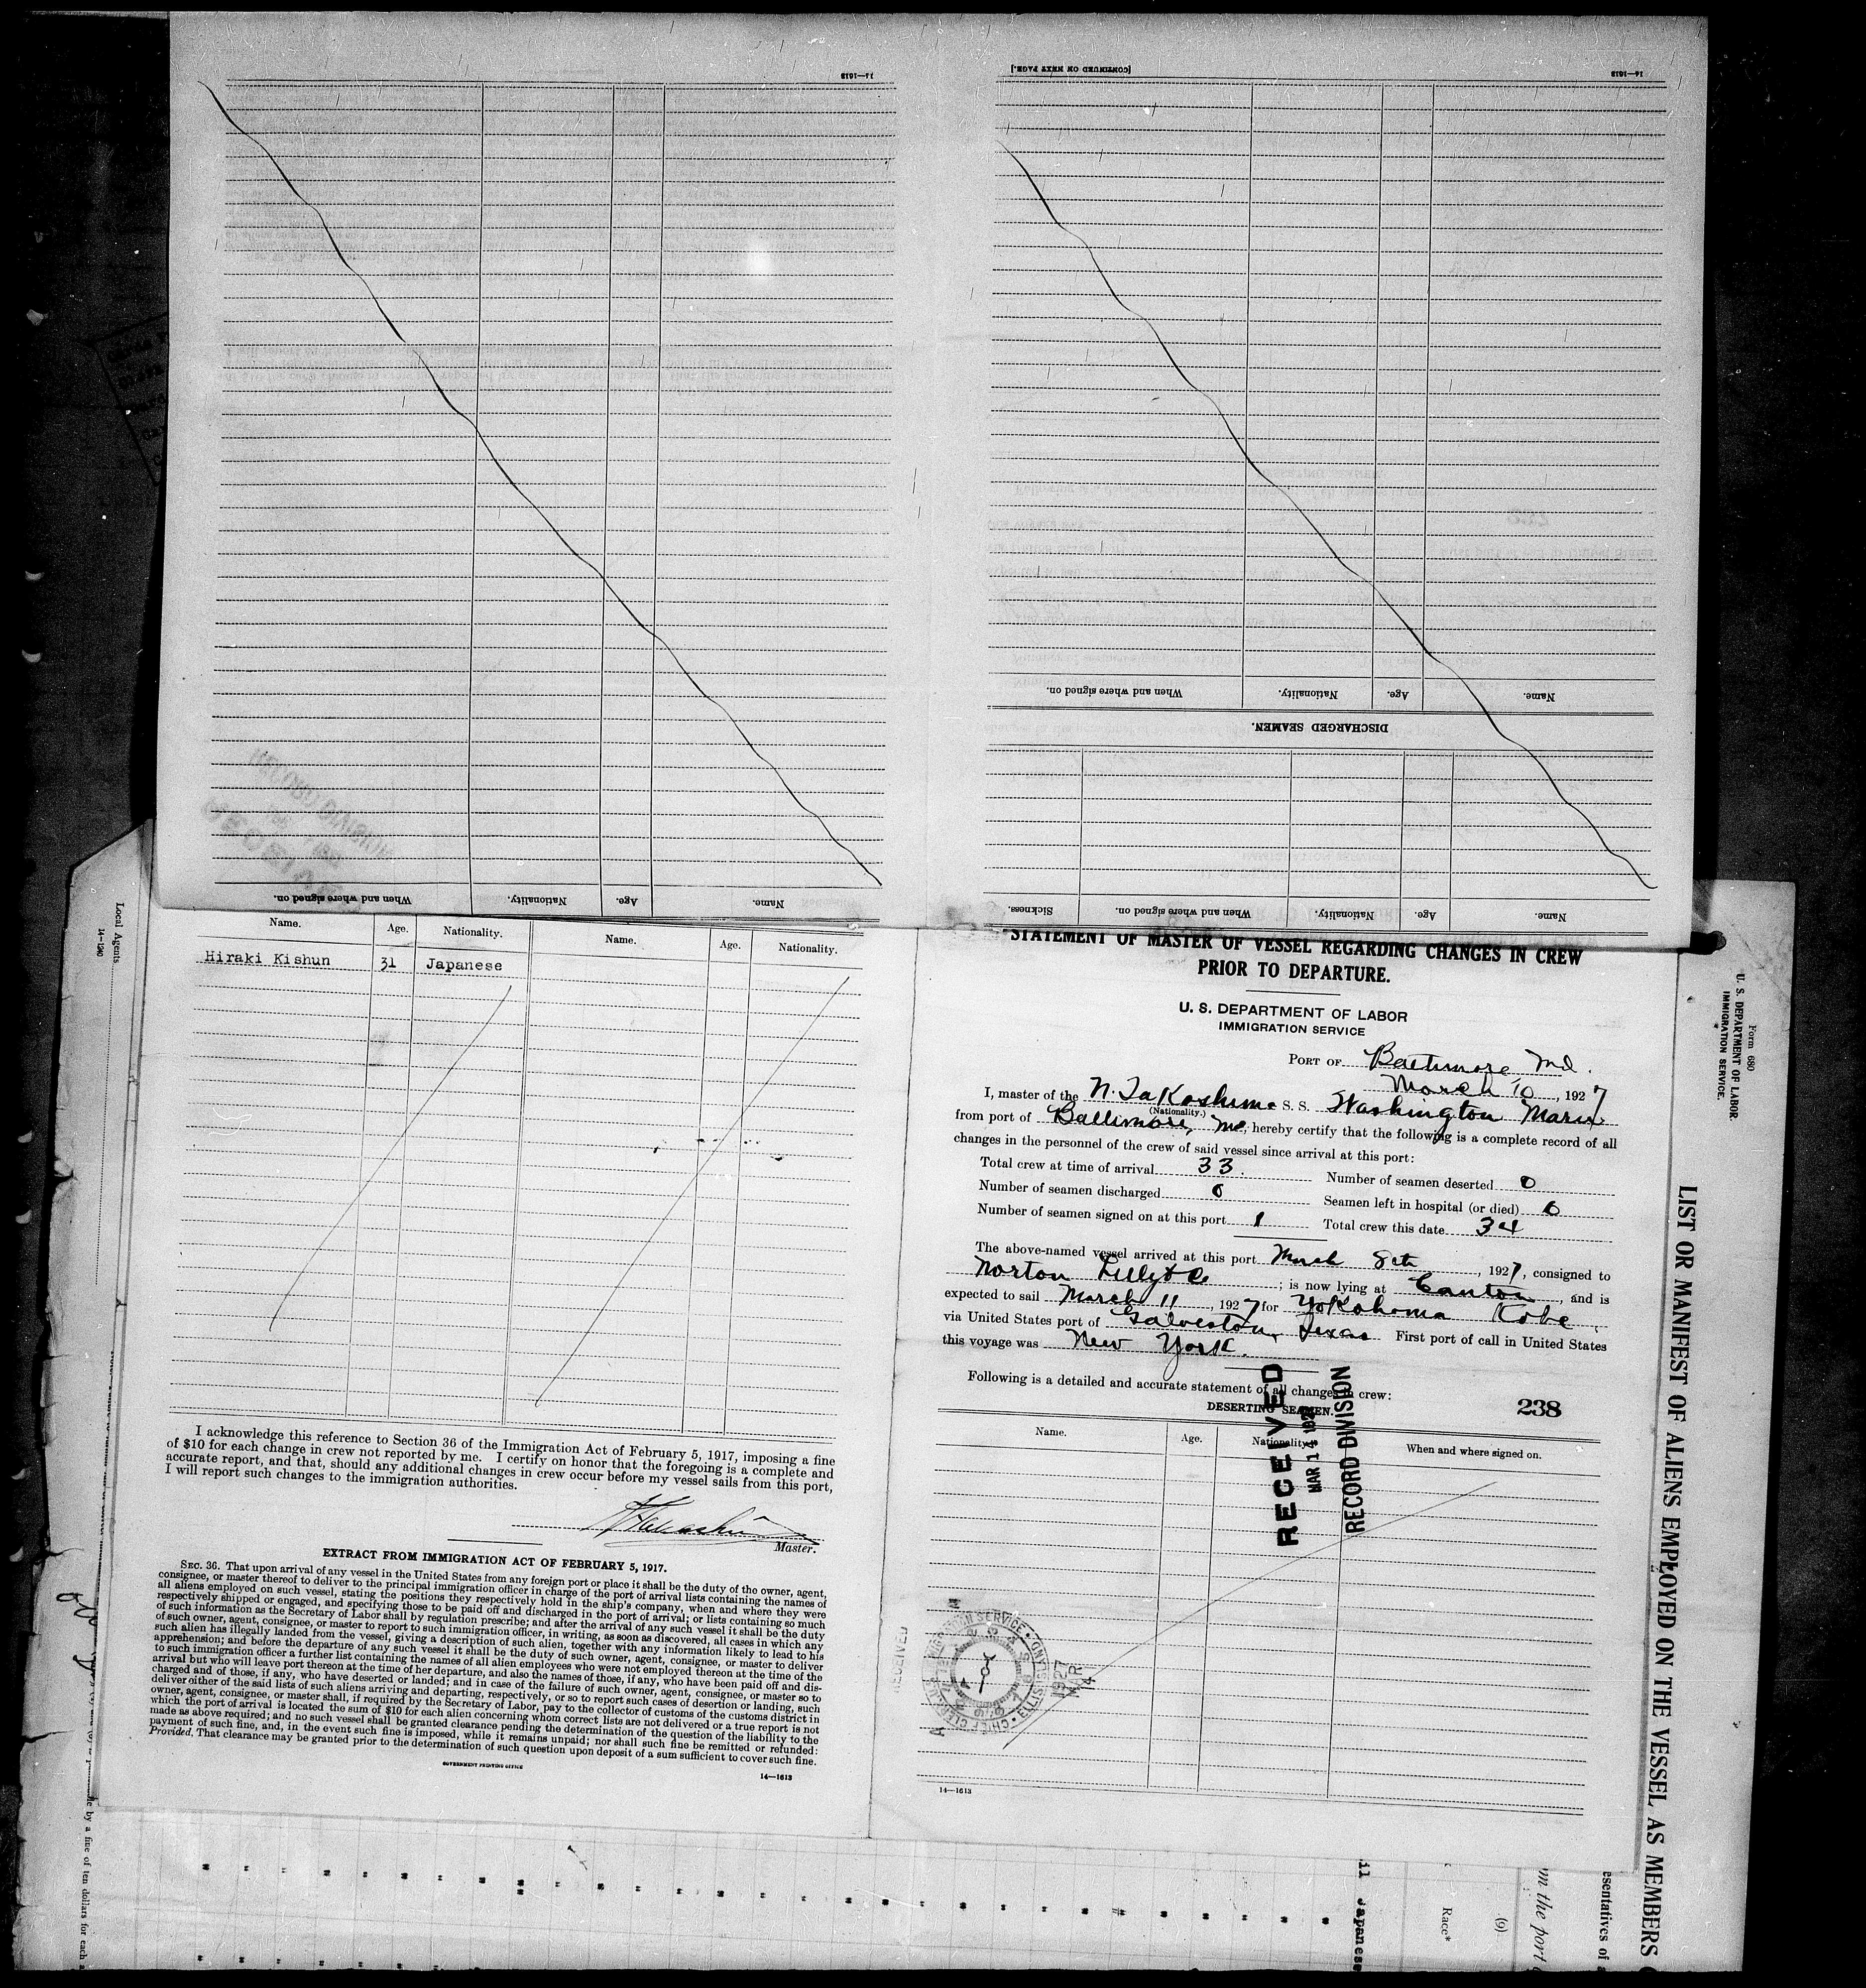 14—1613
[CONTINUED ON NEXT PAGE.]
14—1613
When and where signed on. Nationality. Age. Name.
DISCHARGED SEAMEN.
When and where signed on. Nationality. Age. Name.
Sickness. When and where signed on. Nationality. Age. Name.
Name. Age. Nationality. Name. Age. Nationality.
Hiraki Kishun 31 Japanese
I acknowledge this reference to Section 36 of the Immigration Act of February 5, 1917, imposing a fine
of $10 for each change in crew not reported by me. I certify on honor that the foregoing is a complete and
accurate report, and that, should any additional changes in crew occur before my vessel sails from this port,
I will report such changes to the immigration authorities.
Master.
EXTRACT FROM IMMIGRATION ACT OF FEBRUARY 5, 1917.
SEC. 36. That upon arrival of any vessel in the United States from any foreign port or place it shall be the duty of the owner, agent,
consignee, or master thereof to deliver to the principal immigration officer in charge of the port of arrival lists containing the names of
all aliens employed on such vessel, stating the positions they respectively hold in the ship's company, when and where they were
respectively shipped or engaged, and specifying those to be paid off and discharged in the port of arrival; or lists containing so much
of such information as the Secretary of Labor shall by regulation prescribe; and after the arrival of any such vessel it shall be the duty
of such owner, agent, consignee, or master to report to such immigration officer, in writing, as soon as discovered, all cases in which any
such alien has illegally landed from the vessel, giving a description of such alien, together with any information likely to lead to his
apprehension; and before the departure of any such vessel it shall be the duty of such owner, agent, consignee, or master to deliver
to such immigration officer a further list containing the names of all alien employees who were not employed thereon at the time of the
arrival but who will leave port thereon at the time of her departure, and also the names of those, if any, who have been paid off and dis-
charged and of those, if any, who have deserted or landed; and in case of the failure of such owner, agent, consignee, or master so to
deliver either of the said lists of such aliens arriving and departing, respectively, or so to report such cases of desertion or landing, such
owner, agent, consignee, or master shall, if required by the Secretary of Labor, pay to the collector of customs of the customs district in
which the port of arrival is located the sum of $10 for each alien concerning whom correct lists are not delivered or a true report is not
made as above required; and no such vessel shall be granted clearance pending the determination of the question of the liability to the
payment of such fine, and, in the event such fine is imposed, while it remains unpaid; nor shall such fine be remitted or refunded:
Provided, That clearance may be granted prior to the determination of such question upon deposit of a sum sufficient to cover such fine.
GOVERNMENT PRINTING OFFICE
14—1613
STATEMENT OF MASTER OF VESSEL REGARDING CHANGES IN CREW
PRIOR TO DEPARTURE.
U. S. DEPARTMENT OF LABOR
IMMIGRATION SERVICE
PORT OF Baltimore Md.
March 10, 1927
I, master of the N. Takashima S. S. Washington Maru
(Nationality.)
from port of Baltimore, Md, hereby certify that the following is a complete record of all
changes in the personnel of the crew of said vessel since arrival at this port:
Total crew at time of arrival 33. Number of seamen deserted 0
Number of seamen discharged 0 Seamen left in hospital (or died) 0
Number of seamen signed on at this port 1 Total crew this date 34
The above-named vessel arrived at this port March 8th, 1927, consigned to
Norton Lilly & Co; is now lying at Canton, and is
expected to sail March 11, 1927 for Yokohama Kobe
via United States port of Galveston, Texas First port of call in United States
this voyage was New York.
Following is a detailed and accurate statement of all changes in crew:
DESERTING SEAMEN.
238
Name. Age. Nationality. When and where signed on.
RECEIVED
MAR 14 1927
RECORD DIVISION
RECEIVED
IMMIGRATION SERVICE
ELLIS ISLAND
CHIEF CLERK'S
1927
MAR
14
14—1613
Local Agents
14—1240
Form 680
U. S. DEPARTMENT OF LABOR
IMMIGRATION SERVICE.
LIST OR MANIFEST OF ALIENS EMPLOYED ON THE VESSEL AS MEMBERS
by a fine of ten dollars for each
Japanese
Race*
(9)
the port
esentatives of